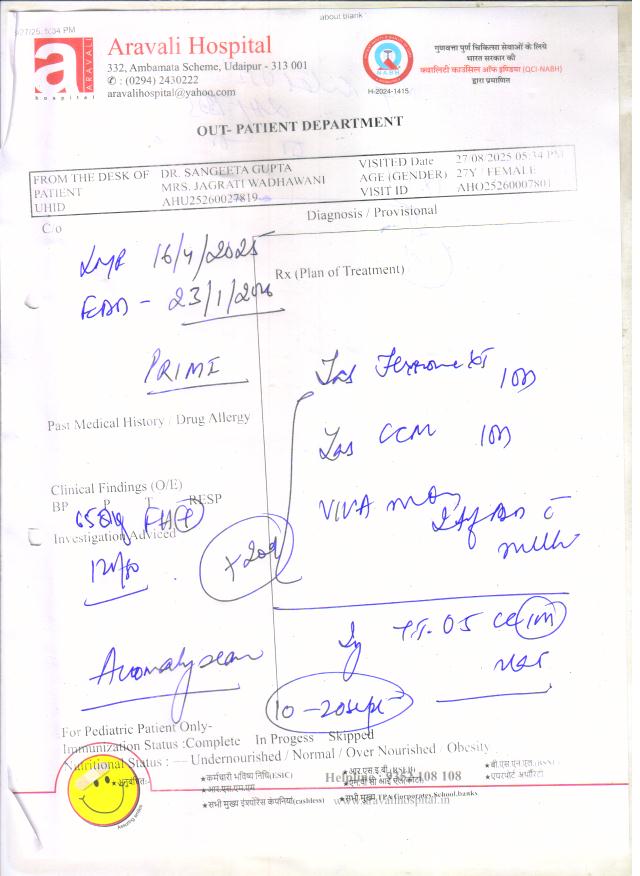 27/25, 5:34 PM
about:blank
Aravali Hospital
332, Ambamata Scheme, Udaipur - 313 001
: (0294) 2430222
aravalihospital@yahoo.com
a ARAVALI
hospital
NABH
H-2024-1415
गुणवत्ता पूर्ण चिकित्सा सेवाओं के लिये
भारत सरकार की
क्वालिटी काउंसिल ऑफ इण्डिया (QCI-NABH)
द्वारा प्रमाणित
OUT- PATIENT DEPARTMENT
FROM THE DESK OF DR. SANGEETA GUPTA
VISITED Date 27/08/2025 05:34 PM
PATIENT MRS. JAGRATI WADHAWANI
AGE (GENDER) 27Y / FEMALE
UHID AHU25260027819
VISIT ID AHO25260007801
C/o
Diagnosis / Provisional
LMP 16/4/2025
Rx (Plan of Treatment)
EDD - 23/1/2026
PRIMI
10D
Past Medical History / Drug Allergy
CCM 10D
Clinical Findings (O/E)
BP P T RESP
VIVA
65
Investigation Adviced
milk
120/80
T.T. 0.5 cc im
Anomaly scan
10 - 20 sept
For Pediatric Patient Only-
Immunization Status :Complete In Progess Skipped
Nutritional Status : — Undernourished / Normal / Over Nourished / Obesity
अनुबंधित:-
कर्मचारी भविष्य निधि(ESIC)
Helpline : 9352 108 108
एयरपोर्ट अथॉरिटी
सभी मुख्य इंश्योरेंस कंपनियां(cashless)
सभी मुख्य TPA Corporates,School,banks
www.aravalihospital.in
Assuring smiles